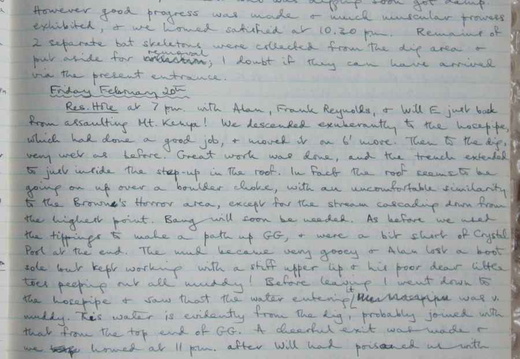 However good progress was made & much muscular prowess
exhibited, & we homed satisfied at 10.30 pm. Remains of
2 separate bat skeletons were collected from the dig area &
put aside for removal, I doubt if they can have arrived
via the present entrance.
Friday February 20th
Res. Hole at 7 pm. with Alan, Frank Reynolds, & Will E. just back
from assaulting Mt. Kenya! We descended exuberantly to the hosepipe,
which had done a good job, & moved it on 6' more. Then to the dig,
very wet as before. Great work was done, and the trench extended
to just inside the step-up in the roof. In fact the roof seems to be
going on up over a boulder choke, with an uncomfortable similarity
to the Browne's Horror area, except for the stream cascading down from
the highest point. Bang will soon be needed. As before we used
the tippings to make a path up GG, & were a bit short of Crystal
Pool at the end. The mud became very gooey & Alan lost a boot
sole but kept working with a stiff upper lip & his poor dear little
toes peeping out all muddy! Before leaving I went down to
the hosepipe & saw that the water entering the hosepipe was v.
muddy. This water is evidently from the dig, probably joined with
that from the top end of GG. A cheerful exit was made &
we homed at 11 pm. after Will had us with